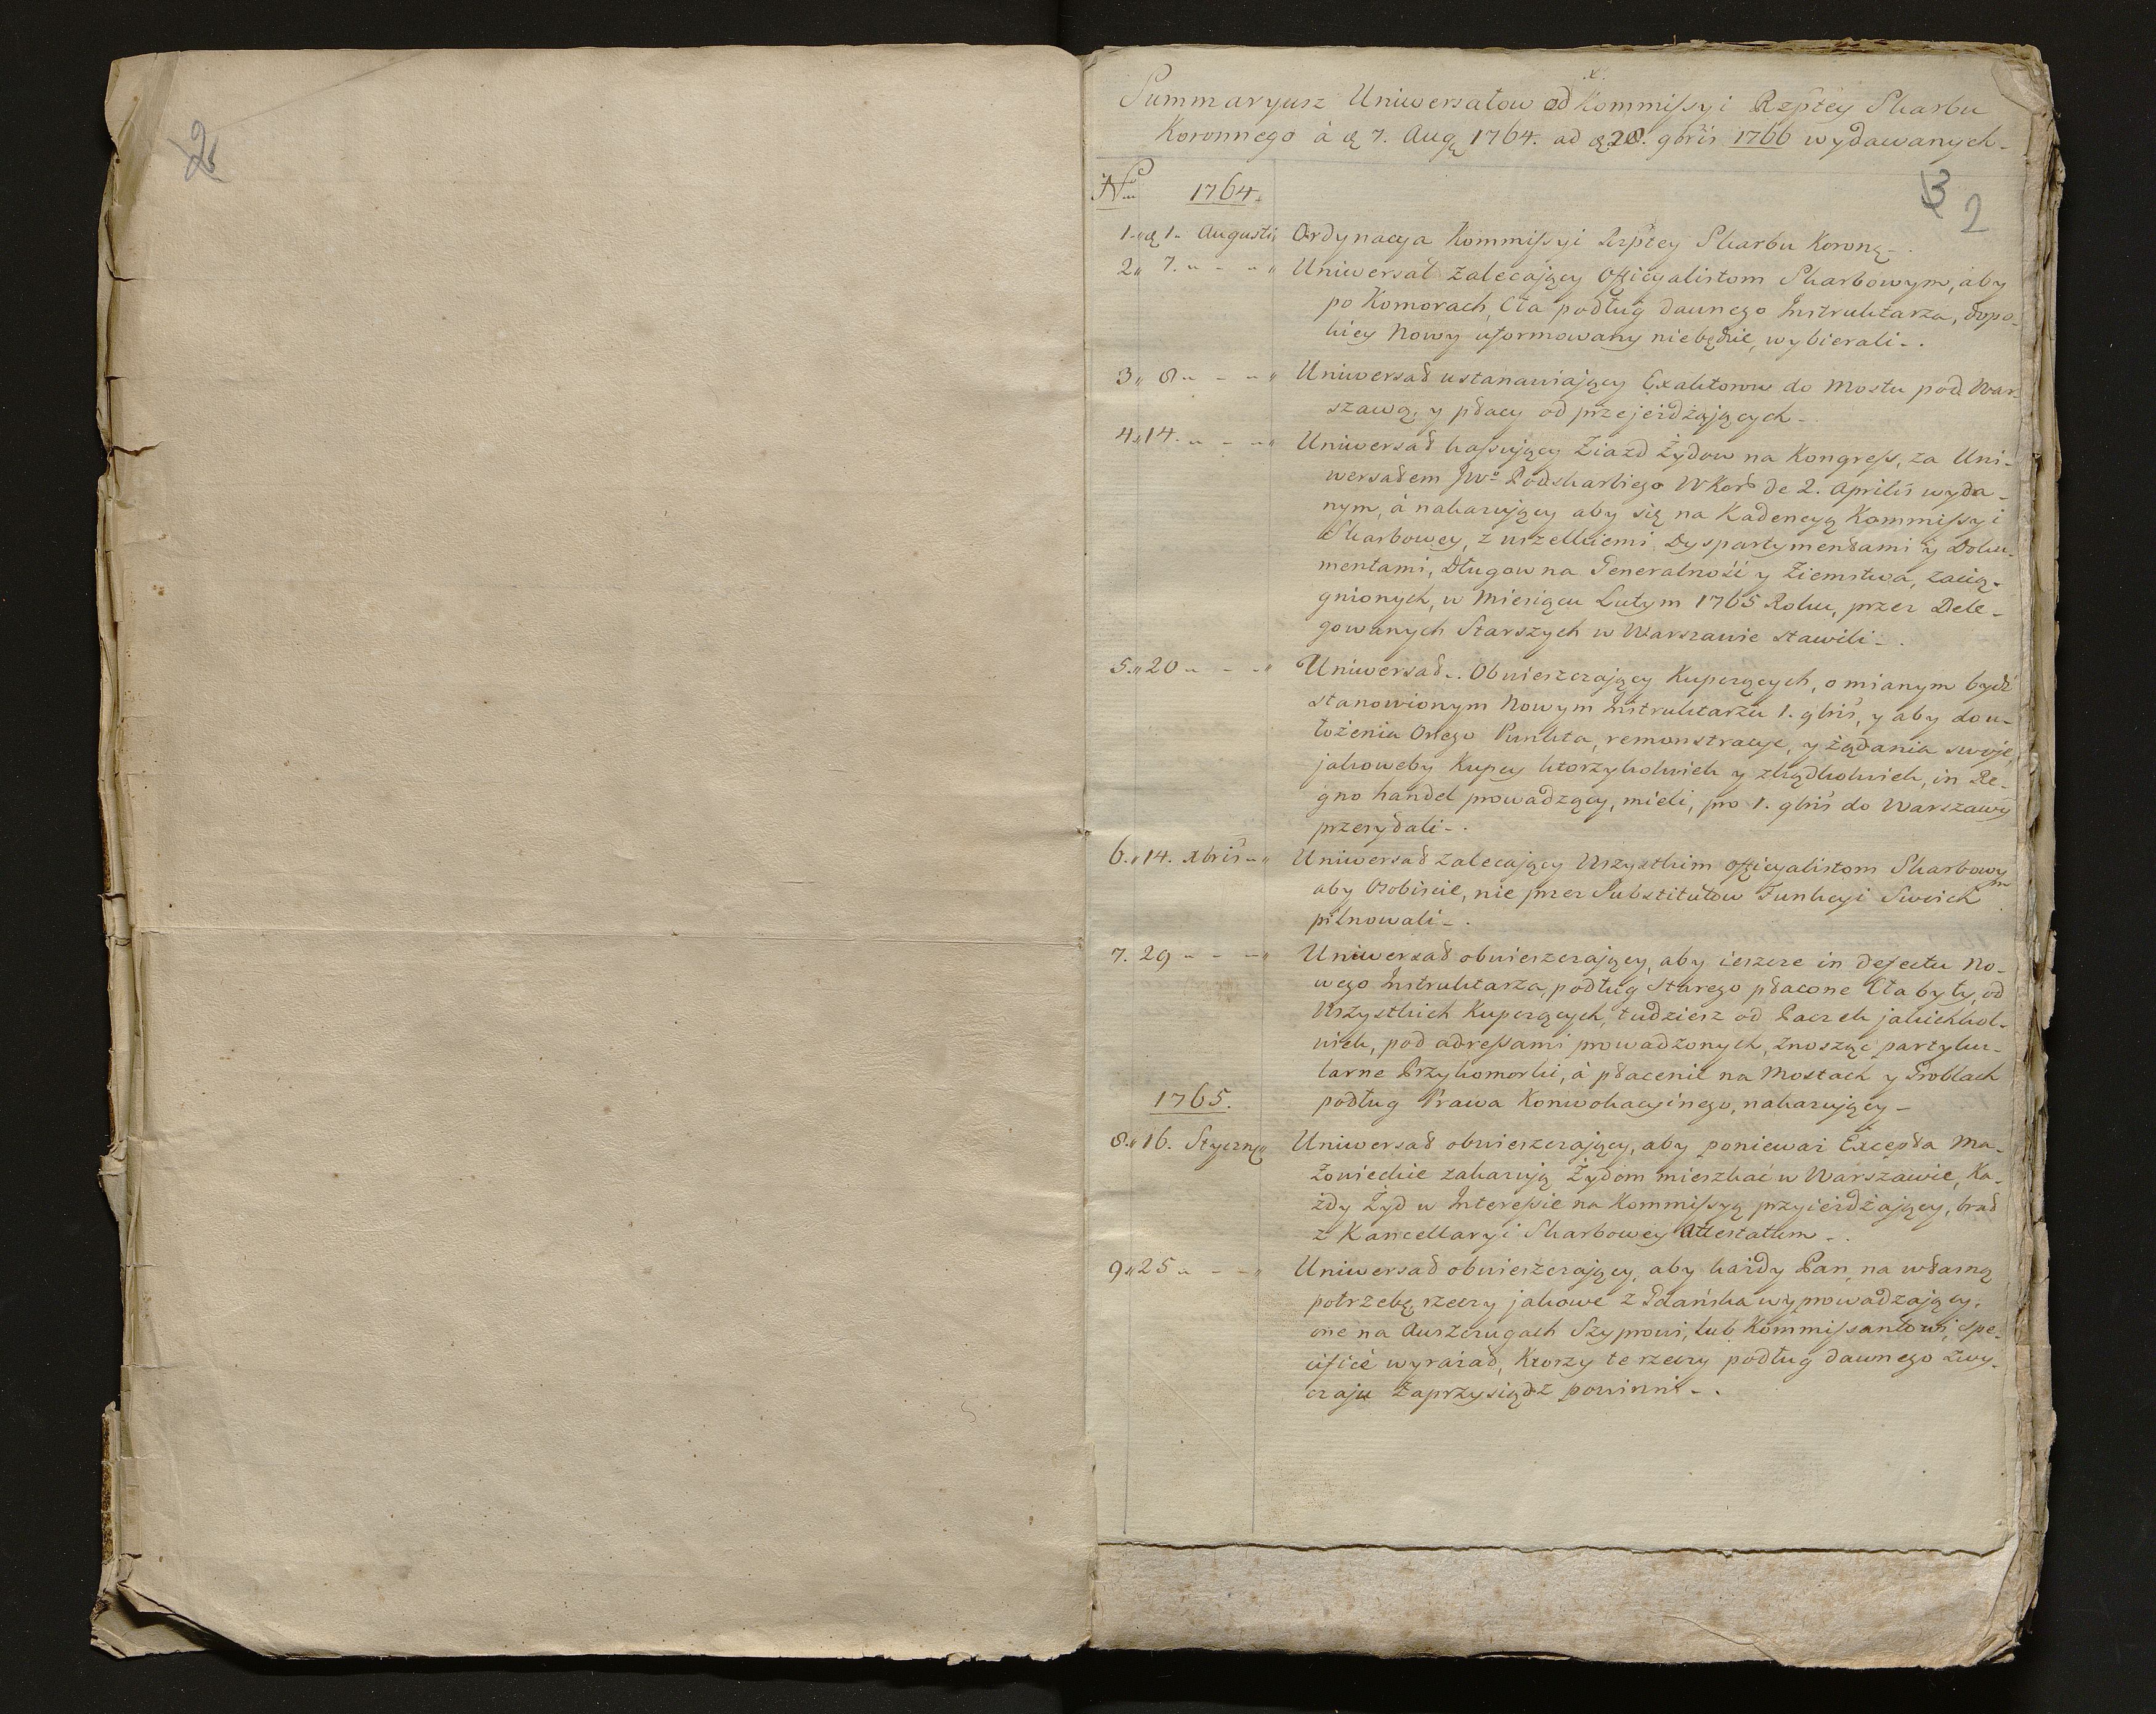 2
Summaryusz Uniwersałow od Kommissyi Rzptey Skarbu
Koronnego à d. 7. Aug. 1764. ad d. 28. 9bris 1766 wydawanych.
3 2
Nro 1764.
1. d. 1. Augusti Ordynacya Kommissyi Rzptey Skarbu Koron.
2. 7. Uniwersał zalecający Officyalistom Skarbowym, aby
po Komorach, Cła podług dawnego Instruktarza, dopo-
kiey Nowy uformowany niebędzie, wybierali.
3. 8. Uniwersał ustanawiający Exaktorow do Mostu pod War-
szawą, y płacy od przejeżdżających.
4. 14. Uniwersał kassujący Ziazd Żydow na Kongress, za Uni-
wersałem JWo Podskarbiego WKor de 2. Aprilis wyda-
nym, à nakazujący aby się na Kadencyą Kommissyi
Skarbowey, z wszelkiemi Dyspartymentami y Doku-
mentami, Długow na Generalność y Ziemstwa, zacią-
gnionych, w Miesiącu Lutym 1765 Roku, przez Dele-
gowanych Starszych w Warszawie stawili.
5. 20 Uniwersał. Obwieszczający Kupczących, o mianym bydź
stanowionym Nowym Instruktarzu 1. 9bris, y aby do u-
łożenia Onego Punkta, remonstracye, y żądania swoje,
jakoweby Kupcy ktorzykolwiek y zkądkolwiek, in Re-
gno handel prowadzący, mieli, pro 1. 9bris do Warszawy
przesyłali.
6. 14. Xbris Uniwersał zalecający Wszystkim Officyalistom Skarbowym
aby Osobiscie, nie przez Substitutow Funkcyi Swoich
pilnowali.
7. 29 Uniwersał obwieszczający, aby ieszcze in defectu No-
wego Instruktarza, podług Starego płacone Cła były, od
Wszystkich Kupczących, tudziesz od Paczek jakichkol-
wiek, pod adressami prowadzonych, znosząc partyku-
larne Przykomorki, à płacenie na Mostach y Groblach
podług Prawa Konwokacyinego, nakazujący
1765.
8. 16. Styczn. Uniwersał obwieszczający, aby ponieważ Excepta Ma-
zowieckie zakazują Żydom mieszkać w Warszawie, Ka-
żdy Żyd w Interessie na Kommissyą przyieżdżający, brał
z Kancellaryi Skarbowey Attestatum.
9. 25 Uniwersał obwieszczający, aby każdy Pan, na własną
potrzebę, rzeczy jakowe z Gdańska wyprowadzający,
one na Auszczugach Szyprowi, lub Kommissantowi, spe-
cifice wyrażał, Ktorzy te rzeczy podług dawnego zwy-
czaju zaprzysiądz powinni.